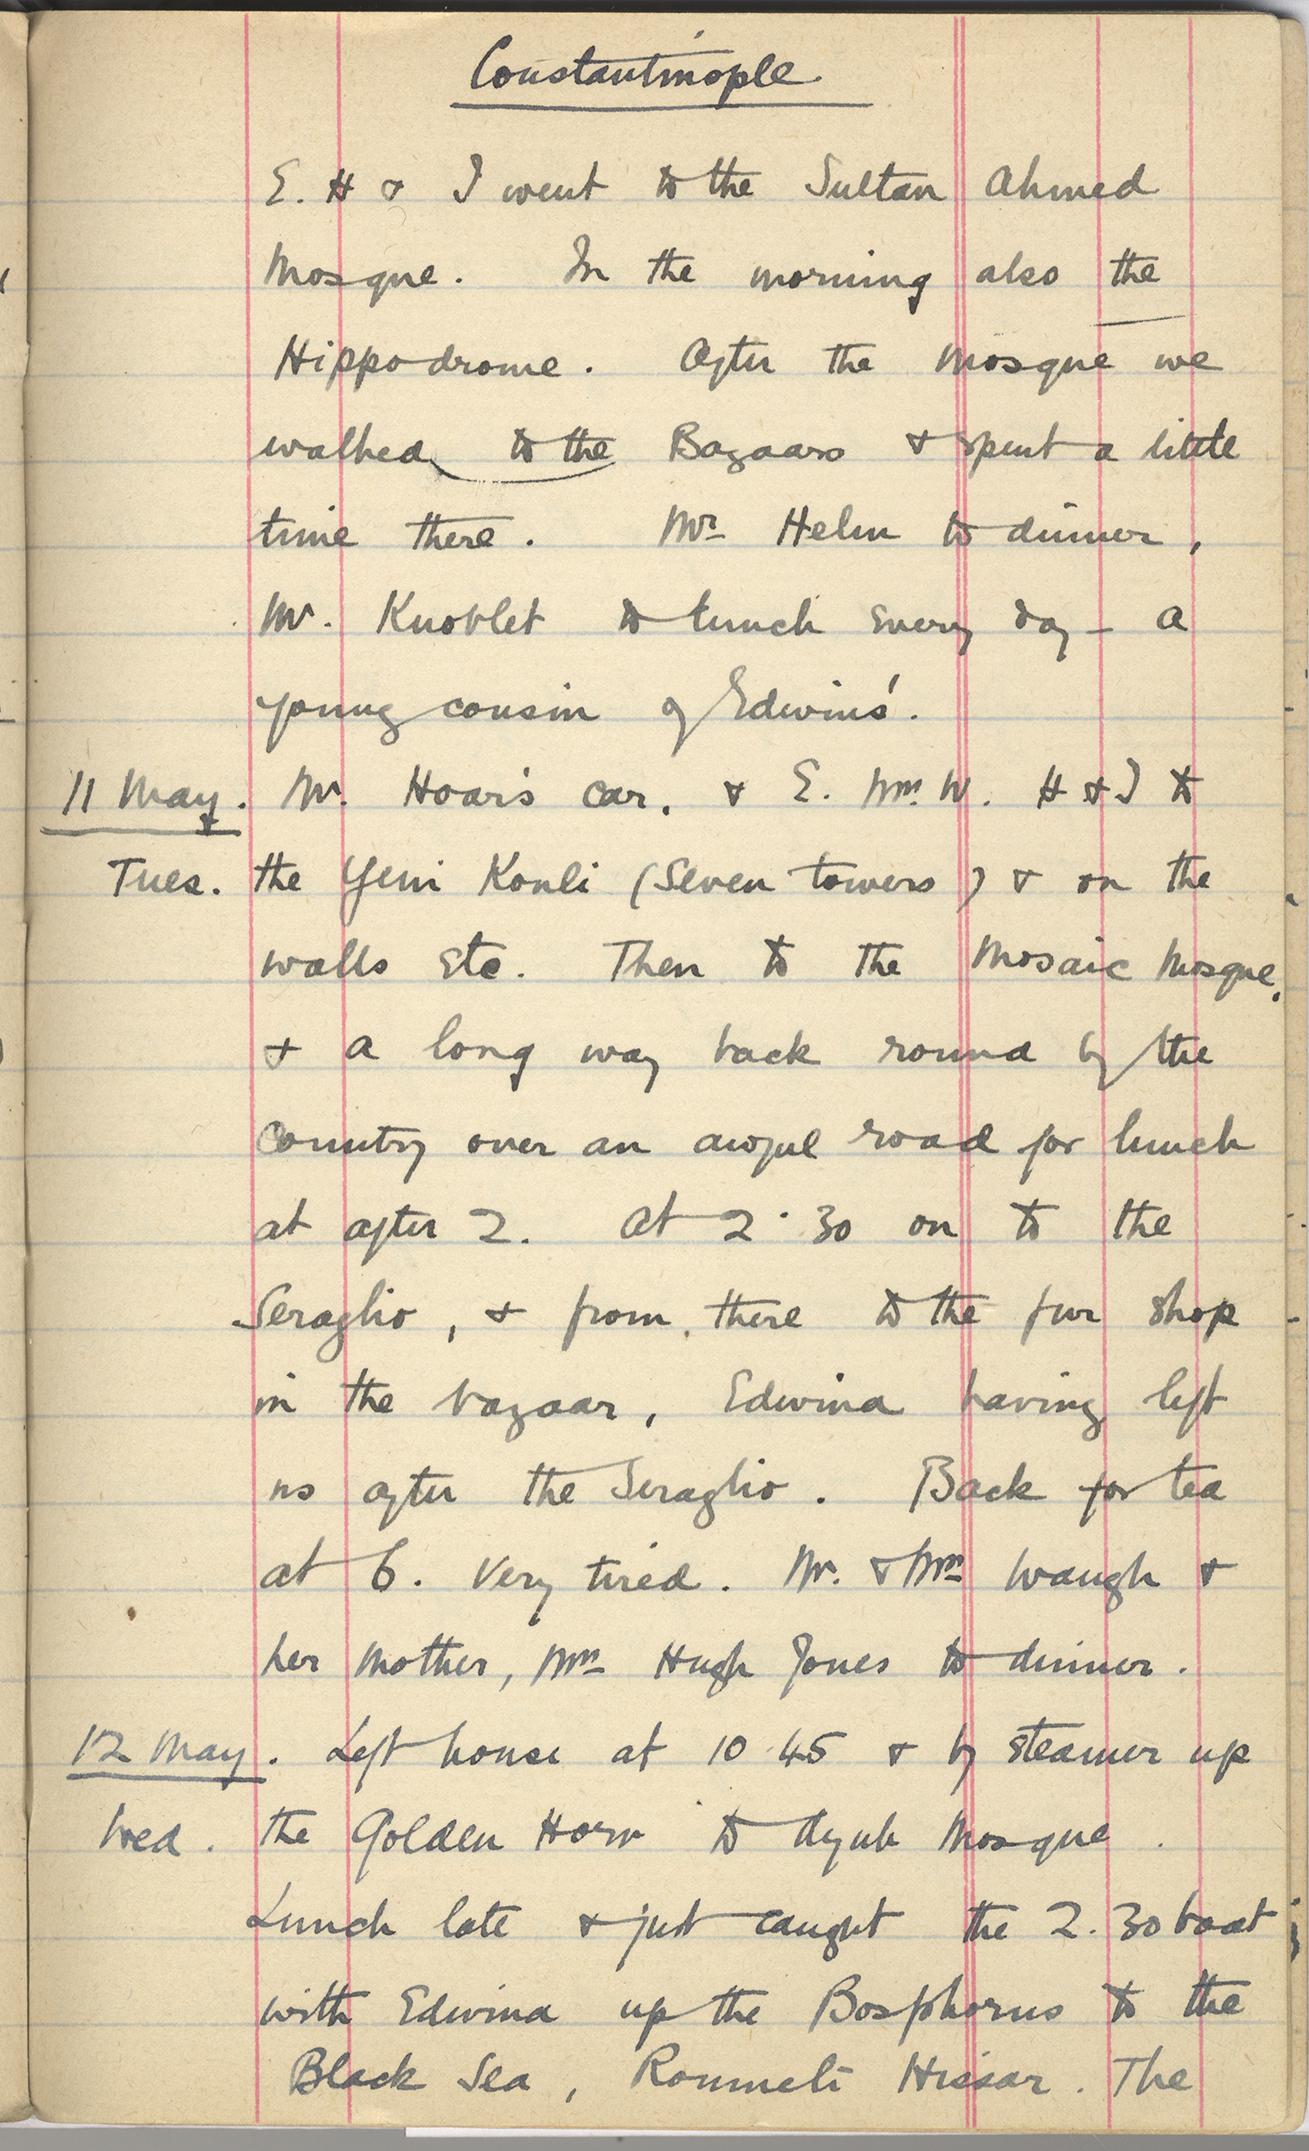 Constantinople
E. H & I went to the Sultan Ahmed
Mosque. In the morning also the
Hippodrome. After the Mosque we
walked to the Bazaars & spent a little
time there. Mr Helm to dinner,
Mr. Knoblet to lunch every day - a
young cousin of Edwin's.
11 May. Mr. Hoar's car, & E. Mrs. W. H & I to
Tues. the Yeni Kouli (Seven towers) & on the
walls etc. Then to the Mosaic Mosque,
& a long way back round by the
country over an awful road for lunch
at after 2. At 2.30 on to the
Seraglio, & from there to the fur shop
in the bazaar, Edwina having left
us after the Seraglio. Back for tea
at 6. Very tired. Mr. & Mrs Waugh &
her Mother, Mrs Hugh Jones to dinner.
12 May. Left house at 10.45 & by steamer up
Wed. the Golden Horn to Ayub Mosque.
Lunch late & just caught the 2.30 boat
with Edwina up the Bosphorus to the
Black Sea, Roumeli Hissar. The